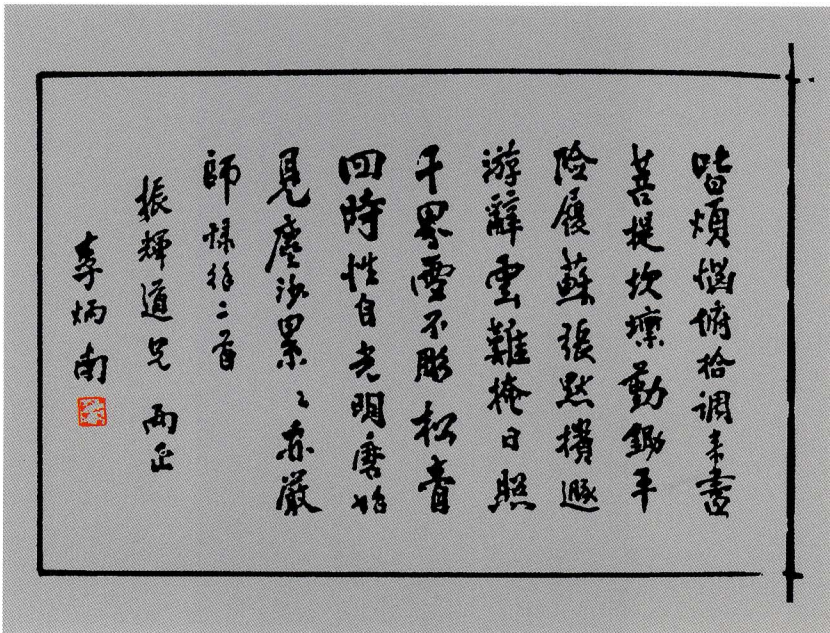 皆煩惱俯拾调来盡
菩提坎壈勤鋤平
險履蘇張默擯遯
游辭雲難掩日照
千界雪不彫松青
四時性自光明磨始
見塵沙累々亦嚴
師 二首
振輝道兄 兩正
李炳南